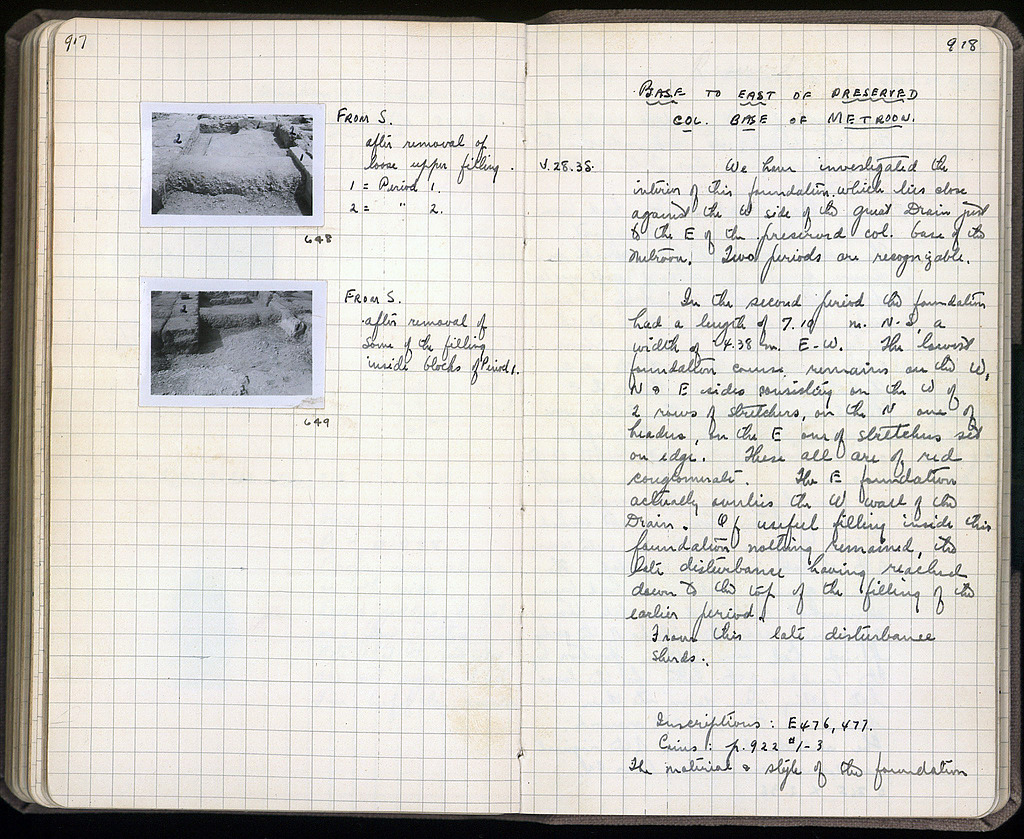 917
From S.
after removal of
loose upper filling.
1 = Period 1.
2 = " 2.
648
From S.
after removal of
some of the filling
inside blocks of Period 1.
649
918
Base to East of Preserved
Col. Base of Metroon.
V.28.38. We have investigated the
interior of this foundation which lies close
against the W side of the great Drain just
to the E of the preserved col. base of the
Metroon. Two periods are recognizable.
In the second period the foundation
had a length of 7.19 m. N-S, a
width of 4.38 m. E-W. The lowest
foundation course remains on the W,
N & E sides consisting on the W of
2 rows of stretchers, on the N one of
headers, on the E one of stretchers set
on edge. These all are of red
conglomerate. The E foundation
actually overlies the W wall of the
Drain. Of useful filling inside this
foundation nothing remained, the
late disturbance having reached
down to the top of the filling of the
earlier period.
From this late disturbance
sherds.
Inscriptions: E476, 477.
Coins: p.922 #1-3
The material & style of the foundation